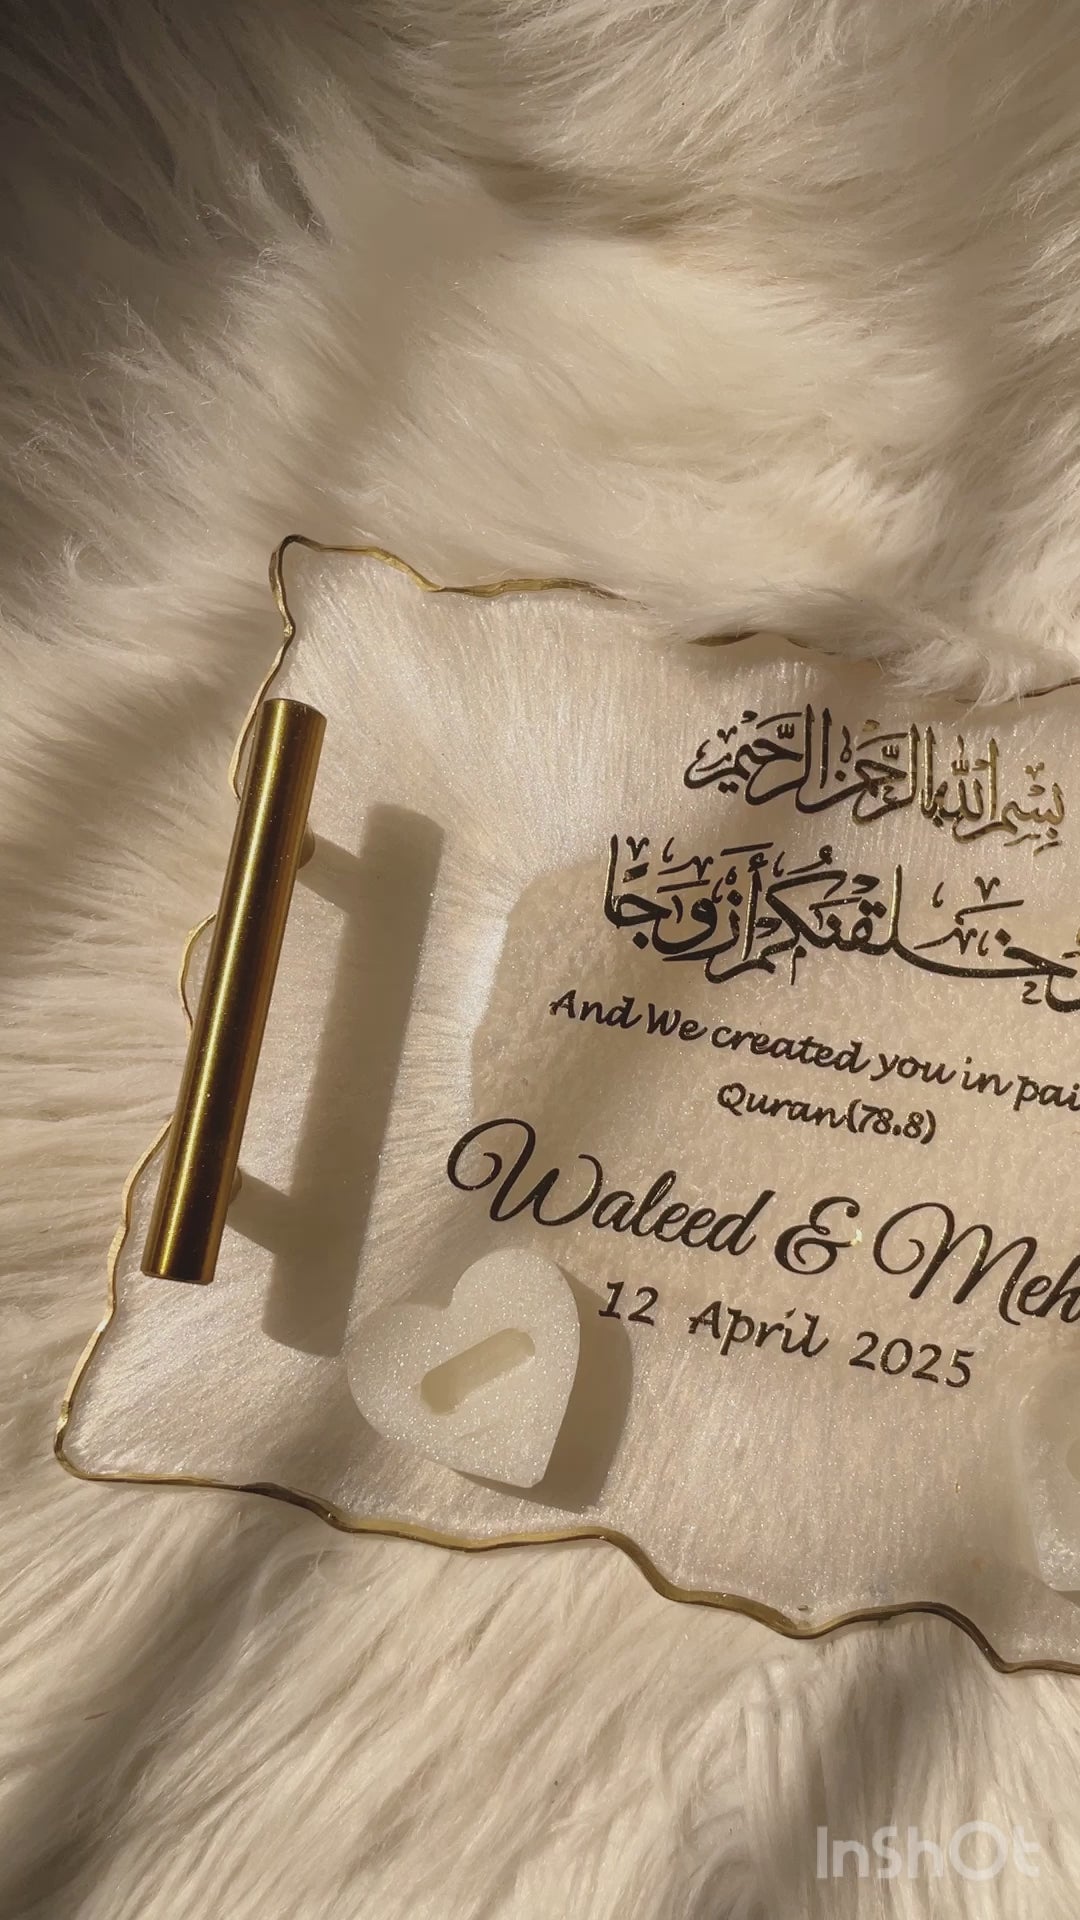 بِسْمِ اللَّهِ الرَّحْمَٰنِ الرَّحِيمِ
خَلَقْنَٰكُمْ أَزْوَٰجًا
And We created you in
Quran(78.8)
Waleed &
12 April 2025
InShOt